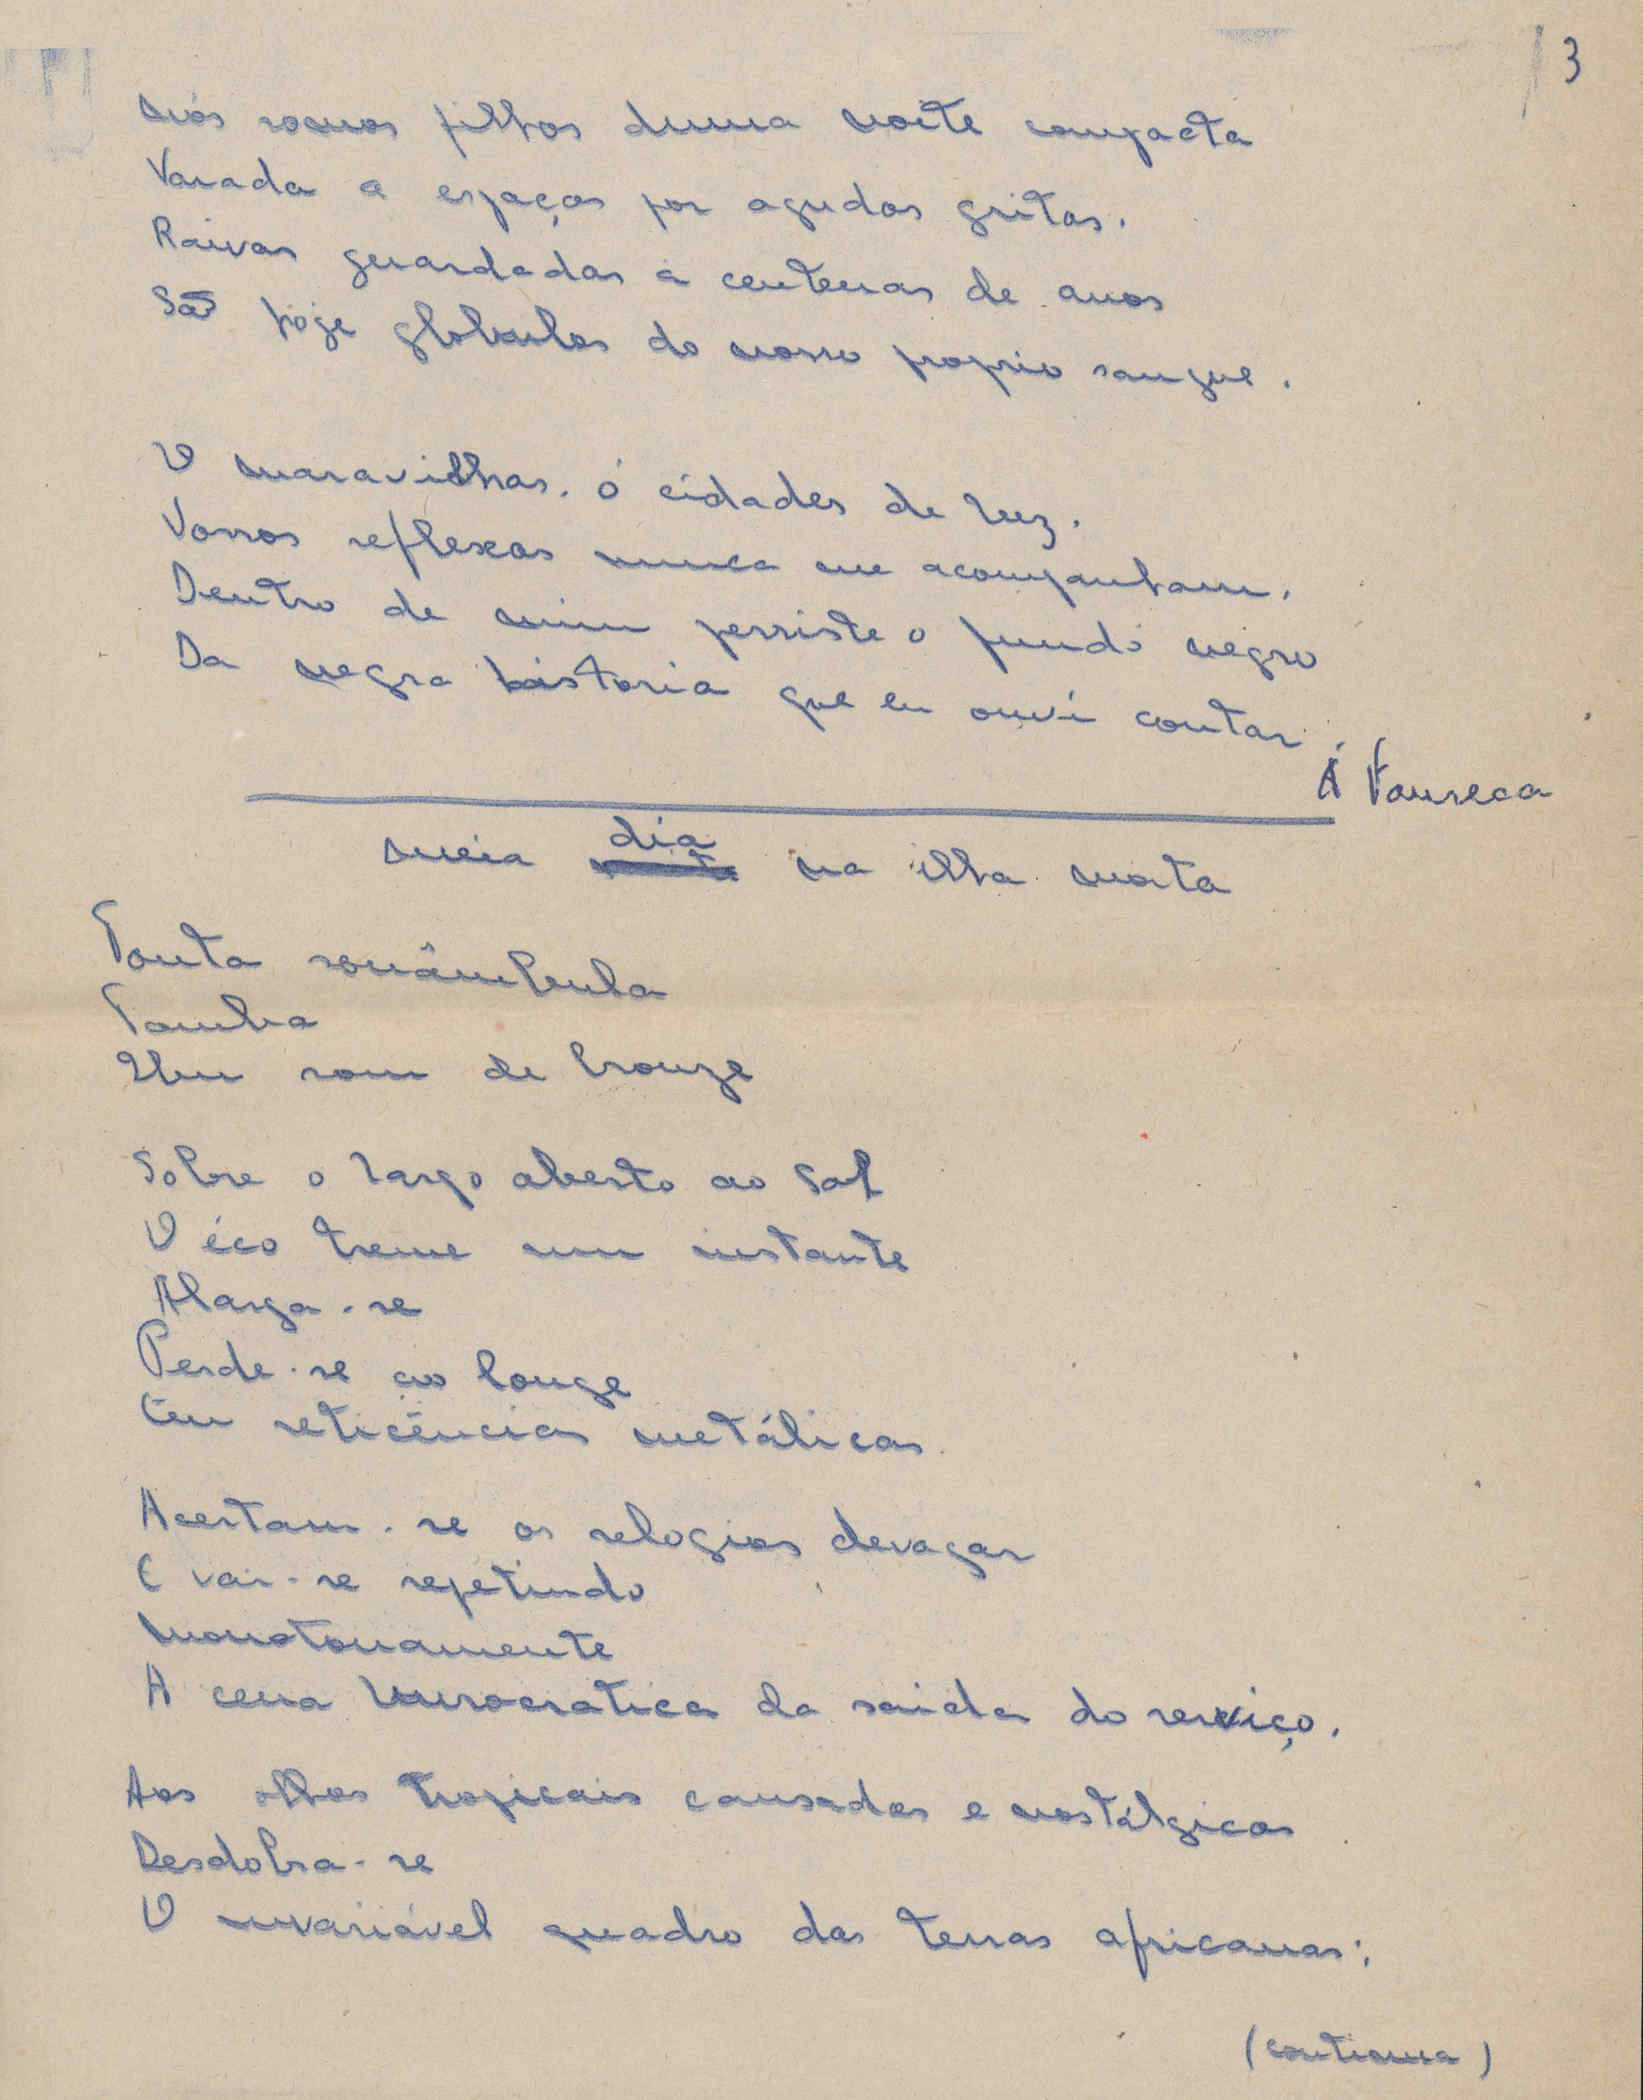 3
Nós somos filhos duma noite compacta
Varada a espaços por agudos gritos.
Raivas guardadas à centenas de anos
São hoje globulos do nosso proprio sangue.
O maravilhas. ó cidades de luz.
Vossos reflexos nunca me acompanham.
Dentro de mim persiste o fundo negro
Da negra historia que eu ouvi contar.
A Fonseca
Meia dia na ilha morta
Tonta sonâmbula
Tomba
Um som de bronze
Sobre o largo aberto ao Sol
O éco treme um instante
Alarga-se
Perde-se ao longe
Em reticências metálicas.
Acertam-se os relogios devagar
E vai-se repetindo
Monotonamente
A cena burocratica da saida do serviço.
Aos olhos tropicais cansados e nostálgicos
Desdobra-se
O invariável quadro das terras africanas:
(continua)